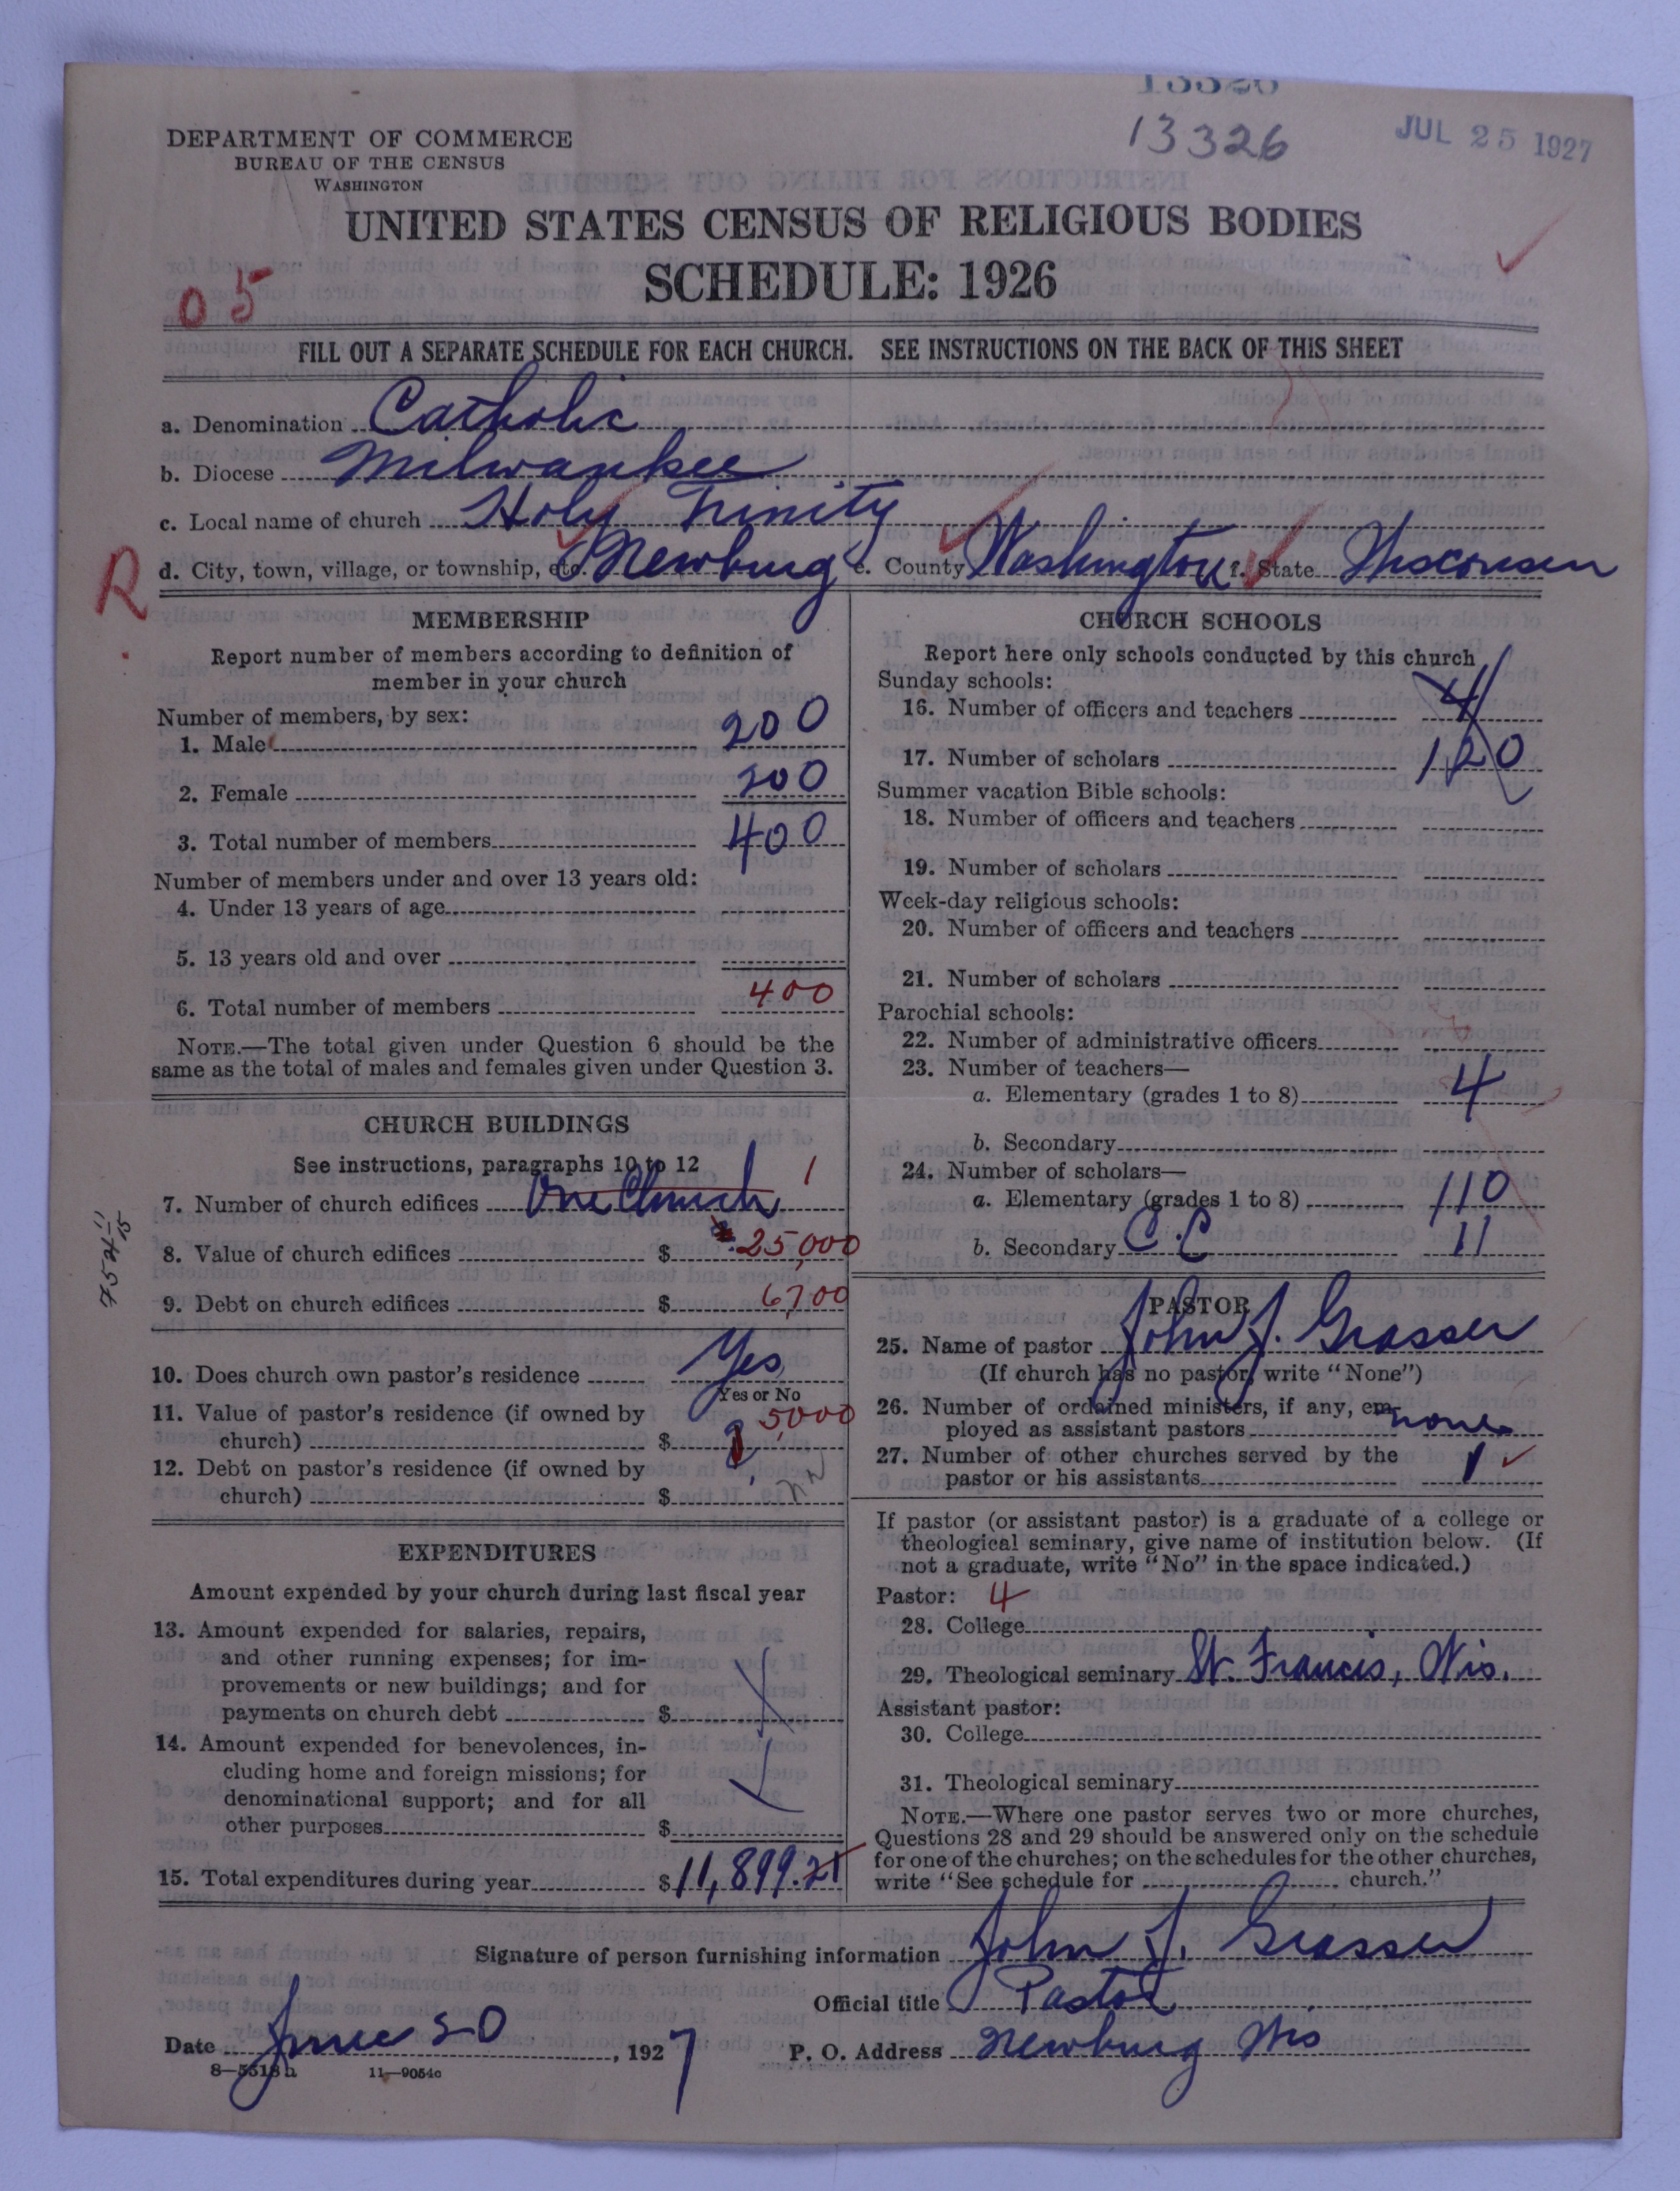 13326
13326
JUL 25 1927
DEPARTMENT OF COMMERCE
BUREAU OF THE CENSUS
WASHINGTON
UNITED STATES CENSUS OF RELIGIOUS BODIES
SCHEDULE: 1926
05
FILL OUT A SEPARATE SCHEDULE FOR EACH CHURCH. SEE INSTRUCTIONS ON THE BACK OF THIS SHEET
a. Denomination Catholic
b. Diocese Milwaukee
c. Local name of church Holy Trinity
R
d. City, town, village, or township, etc. Newburg e. County Washington f. State Wisconsin
MEMBERSHIP
Report number of members according to definition of
member in your church
Number of members, by sex:
1. Male 200
2. Female 200
3. Total number of members 400
Number of members under and over 13 years old:
4. Under 13 years of age
5. 13 years old and over
6. Total number of members 400
NOTE.—The total given under Question 6 should be the
same as the total of males and females given under Question 3.
CHURCH BUILDINGS
See instructions, paragraphs 10 to 12
7. Number of church edifices One Church 1
8. Value of church edifices $ 25,000
9. Debt on church edifices $ 6700
10. Does church own pastor's residence Yes
Yes or No
11. Value of pastor's residence (if owned by
church) $ 5,000
12. Debt on pastor's residence (if owned by
church) $
EXPENDITURES
Amount expended by your church during last fiscal year
13. Amount expended for salaries, repairs,
and other running expenses; for im-
provements or new buildings; and for
payments on church debt $
14. Amount expended for benevolences, in-
cluding home and foreign missions; for
denominational support; and for all
other purposes $
15. Total expenditures during year $11,899.21
CHURCH SCHOOLS
Report here only schools conducted by this church
Sunday schools:
16. Number of officers and teachers 4
17. Number of scholars 120
Summer vacation Bible schools:
18. Number of officers and teachers
19. Number of scholars
Week-day religious schools:
20. Number of officers and teachers
21. Number of scholars
Parochial schools:
22. Number of administrative officers
23. Number of teachers—
a. Elementary (grades 1 to 8) 4
b. Secondary
24. Number of scholars—
a. Elementary (grades 1 to 8) 110
b. Secondary C.C 11
PASTOR
25. Name of pastor John J. Grasser
(If church has no pastor, write "None")
26. Number of ordained ministers, if any, em-
ployed as assistant pastors none
27. Number of other churches served by the
pastor or his assistants 1
If pastor (or assistant pastor) is a graduate of a college or
theological seminary, give name of institution below. (If
not a graduate, write "No" in the space indicated.)
Pastor: 4
28. College
29. Theological seminary St. Francis, Wis.
Assistant pastor:
30. College
31. Theological seminary
NOTE.—Where one pastor serves two or more churches,
Questions 28 and 29 should be answered only on the schedule
for one of the churches; on the schedules for the other churches,
write "See schedule for church."
Signature of person furnishing information John J. Grasser
Official title Pastor
Date June 20, 1927 P. O. Address Newburg Wis
8—5518 a 11—9054c